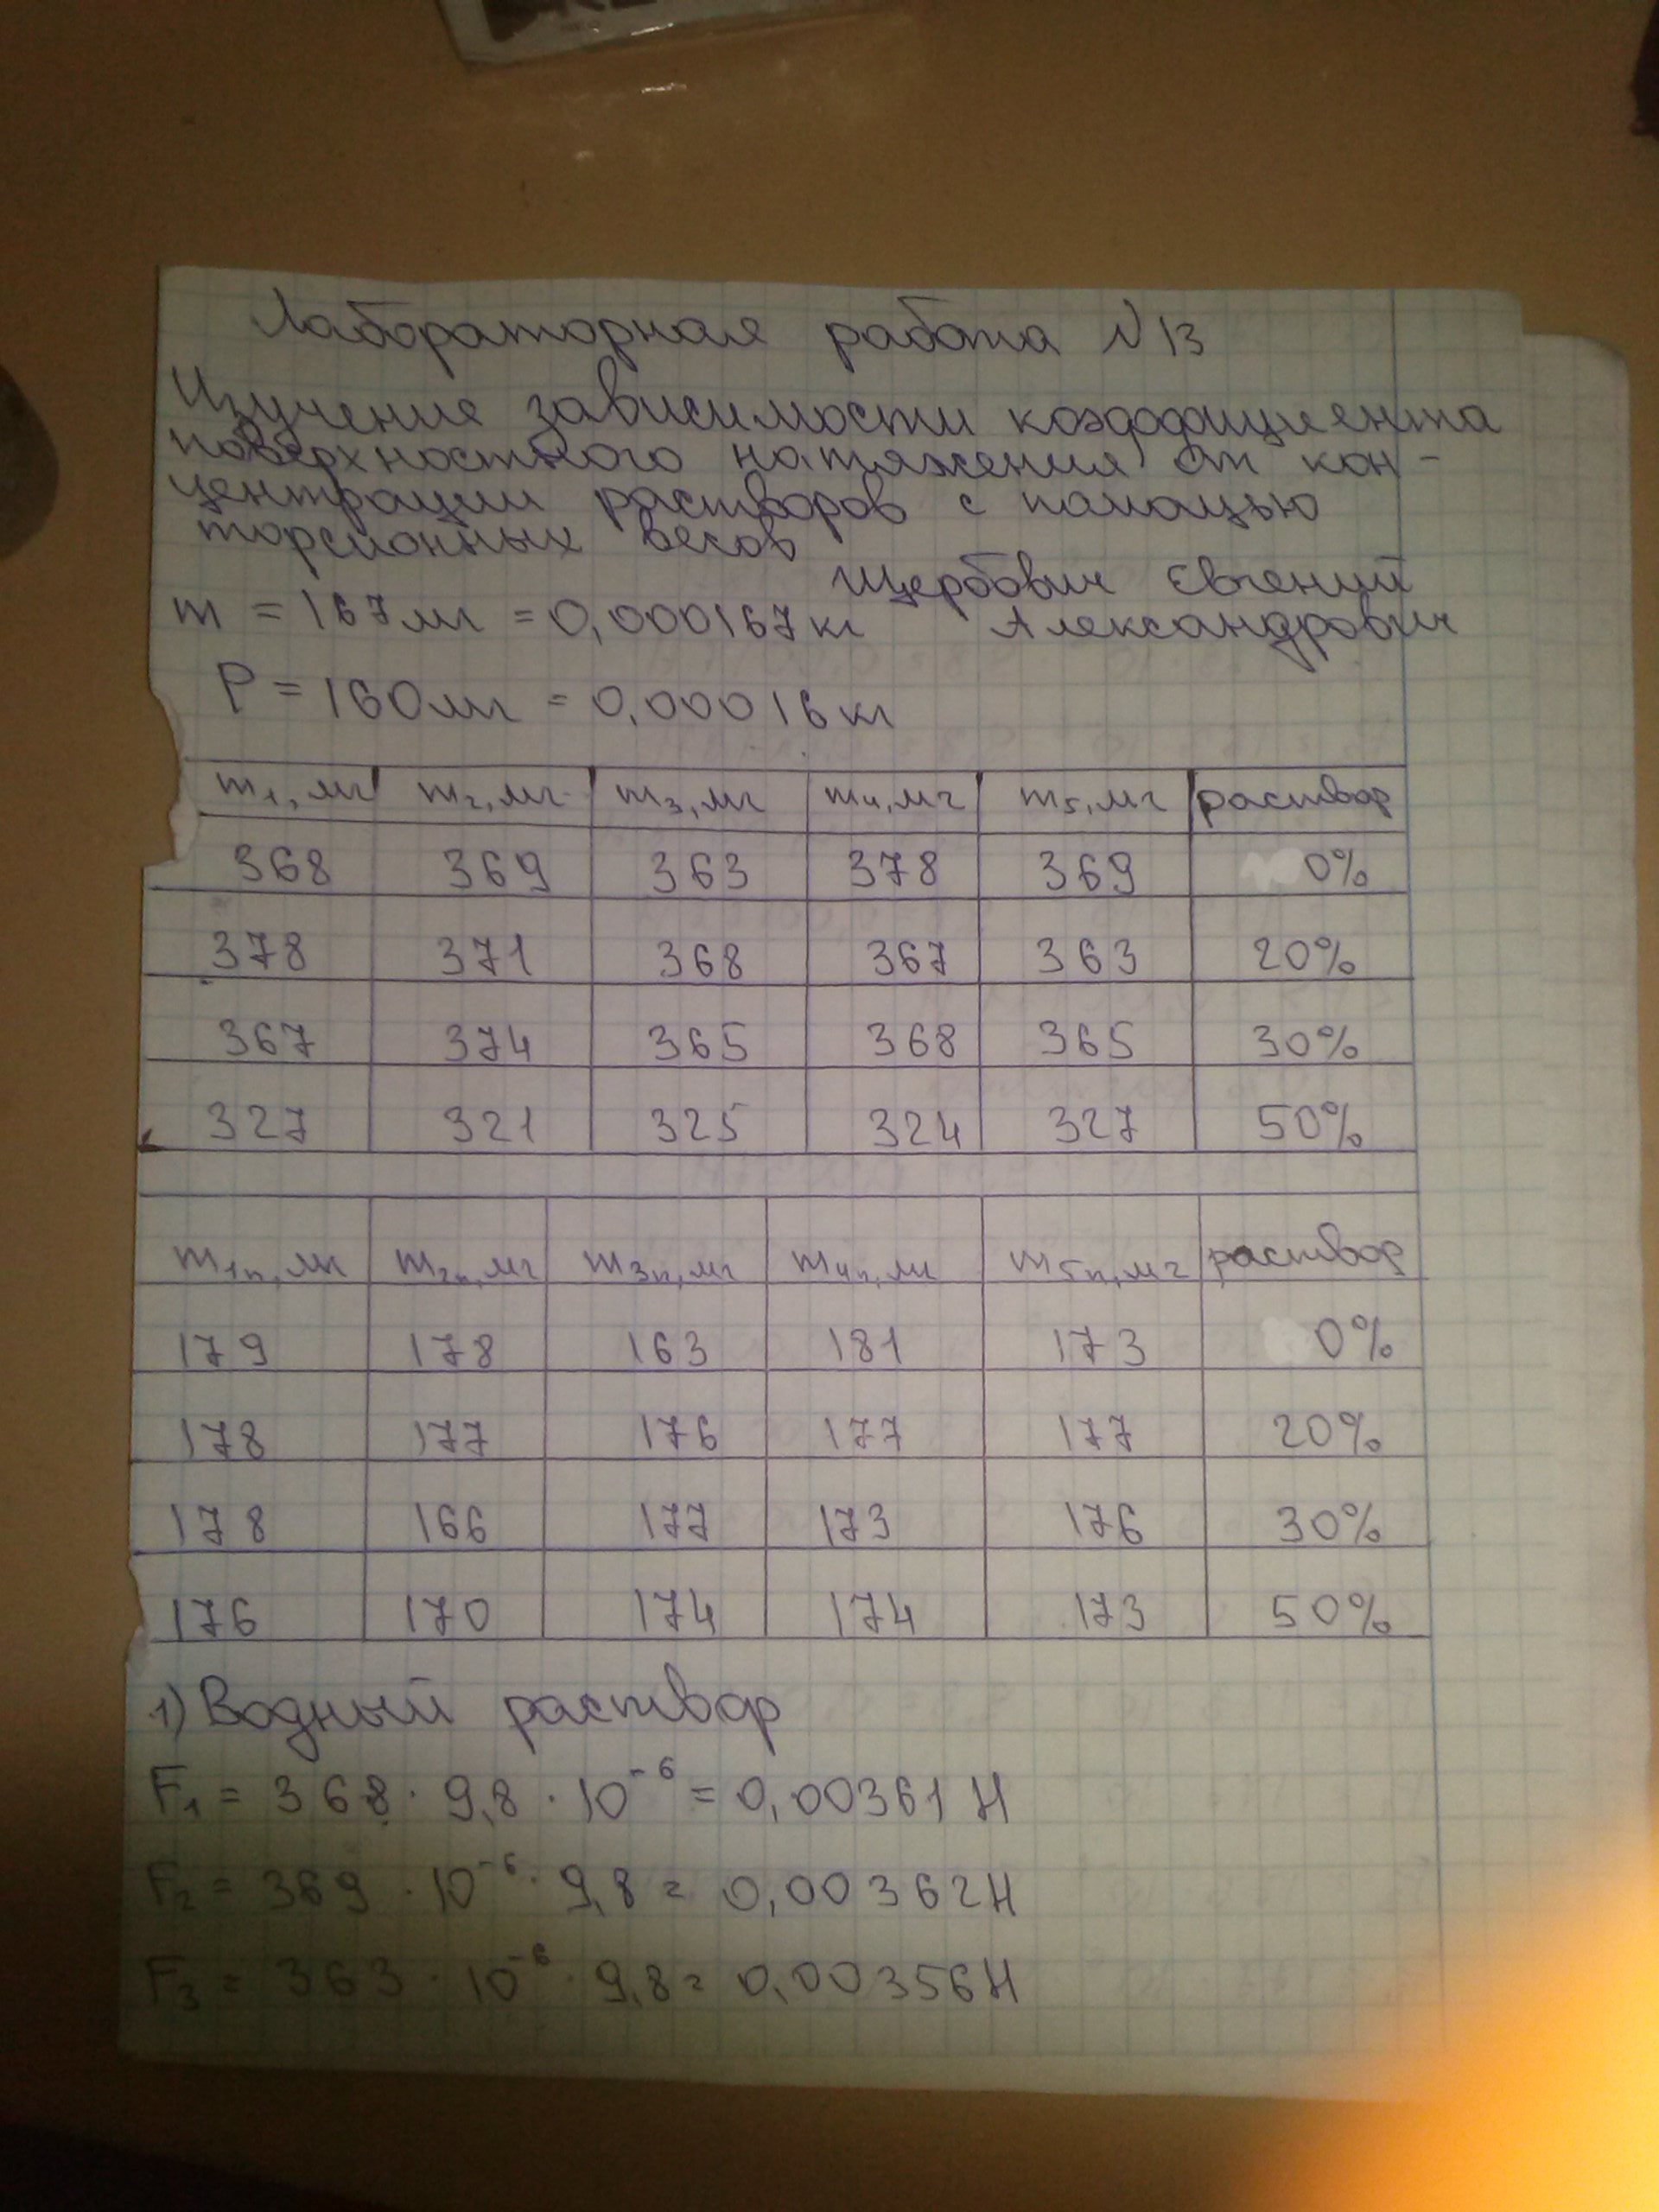 Лабораторная работа №13
Изучение зависимости коэффициента
поверхностного натяжения от кон-
центрации растворов с помощью
торсионных весов
Щербович Евгений
m = 167 мг = 0,000167 кг Александрович
P = 160 мг = 0,00016 кг
m₁, мг m₂, мг m₃, мг m₄, мг m₅, мг раствор
368 369 363 378 369 0%
378 371 368 367 363 20%
367 374 365 368 365 30%
327 321 325 324 327 50%
m₁ₙ, мг m₂ₙ, мг m₃ₙ, мг m₄ₙ, мг m₅ₙ, мг раствор
179 178 163 181 173 0%
178 177 176 177 177 20%
178 166 177 173 176 30%
176 170 174 174 173 50%
1) Водный раствор
F₁ = 368 · 9,8 · 10⁻⁶ = 0,00361 Н
F₂ = 369 · 10⁻⁶ · 9,8 = 0,00362 Н
F₃ = 363 · 10⁻⁶ · 9,8 = 0,00356 Н